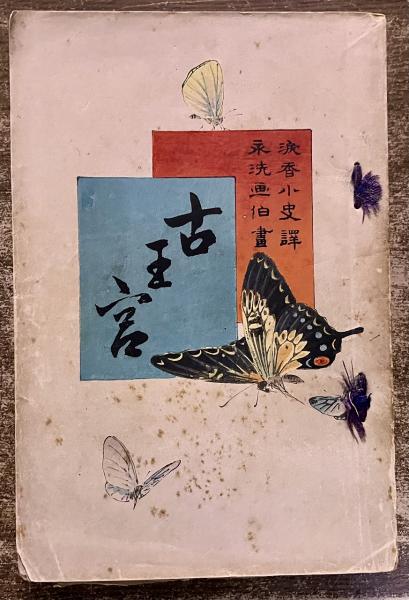 涙香小史譯
永洗画伯畫
古王宮